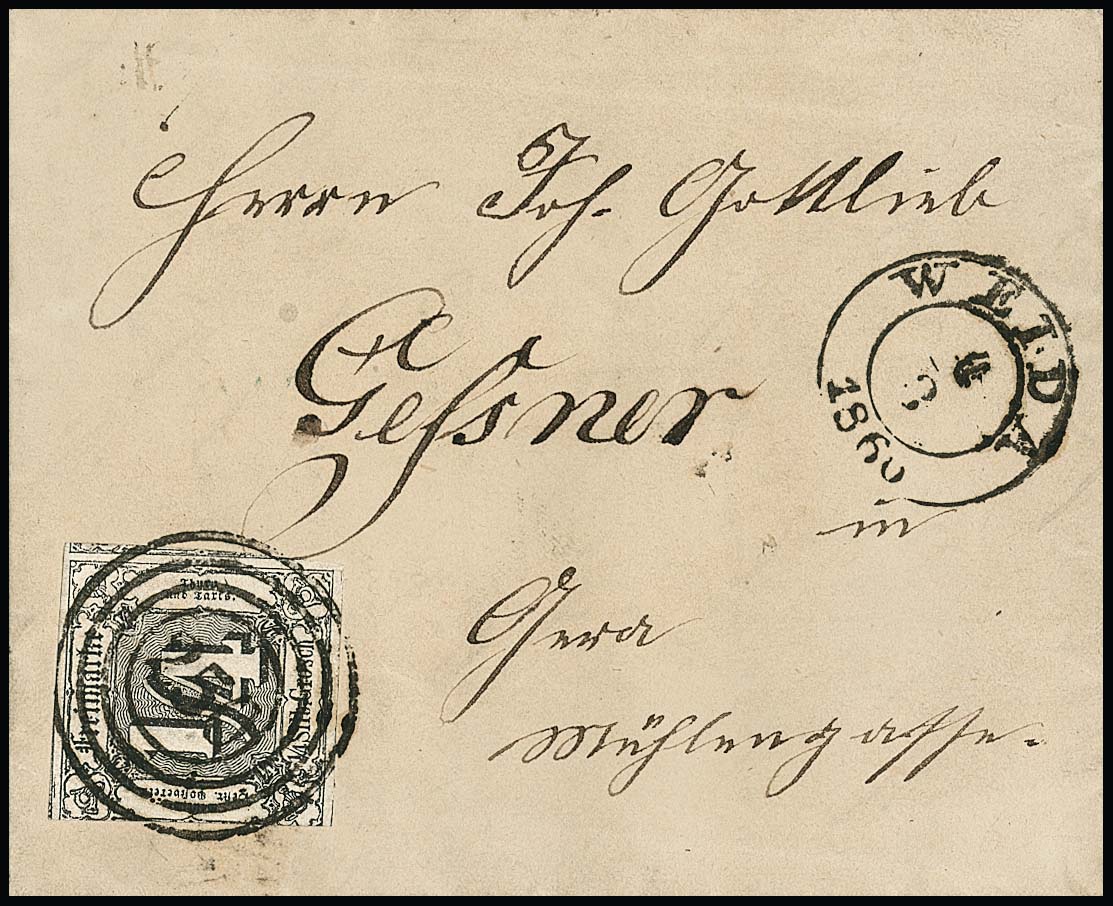 Herrn Joh. Gottlieb
Geſsner
in
Gera
Mühlengasse.
WEIDA
1860
Freimarke
Thurn
und Taxis.